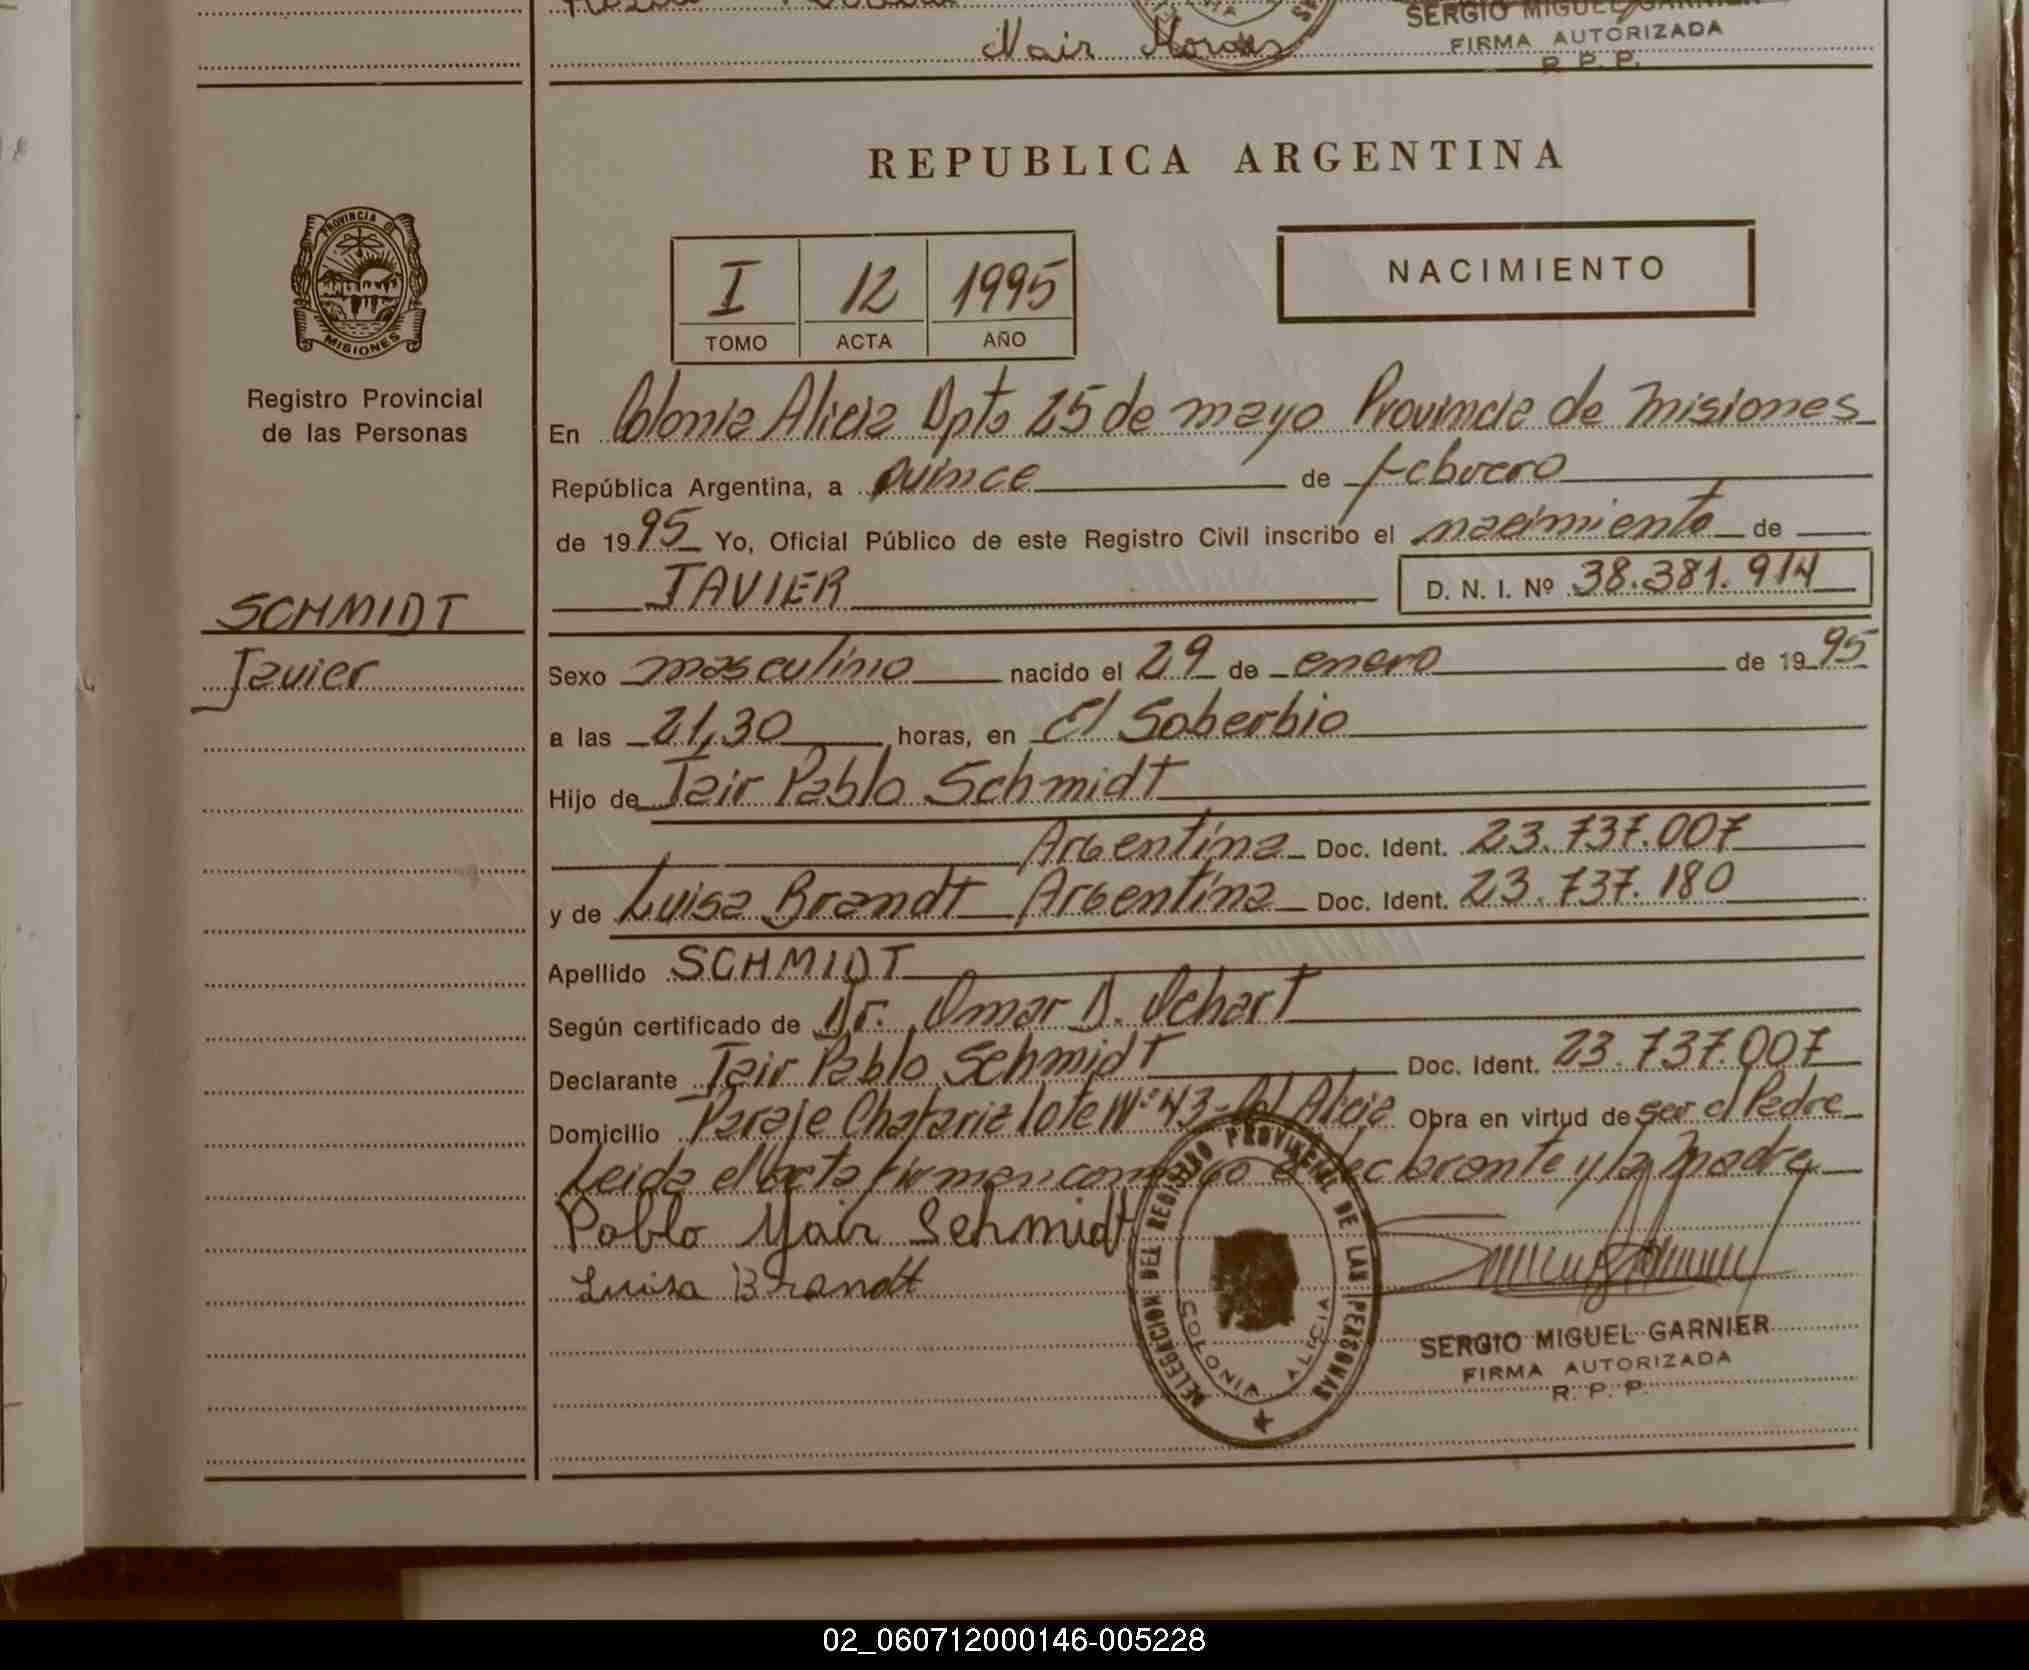 Nair Morais
SERGIO MIGUEL GARNIER
FIRMA AUTORIZADA
R. P. P.
REPUBLICA ARGENTINA
PROVINCIA DE
MISIONES
Registro Provincial
de las Personas
I 12 1995
TOMO ACTA AÑO
NACIMIENTO
En Colonia Alicia Dpto 25 de mayo Provincia de Misiones
República Argentina, a quince de febrero
de 1995 Yo, Oficial Público de este Registro Civil inscribo el nacimiento de
JAVIER D. N. I. Nº 38.381.914
SCHMIDT
Javier
Sexo masculino nacido el 29 de enero de 1995
a las 21,30 horas, en El Soberbio
Hijo de Jair Pablo Schmidt
Argentina Doc. Ident. 23.737.007
y de Luisa Brandt Argentina Doc. Ident. 23.737.180
Apellido SCHMIDT
Según certificado de Dr. Omar D. Ochart
Declarante Jair Pablo Schmidt Doc. Ident. 23.737.007
Domicilio Paraje Chafariz lote Nº 43-Col Alicia Obra en virtud de ser el Padre
Leida el acta firman conmigo el declarante y la Madre
Pablo Yair Schmidt
Luisa Brandt
DELEGACION DEL REGISTRO PROVINCIAL DE LAS PERSONAS
COLONIA ALICIA
SERGIO MIGUEL GARNIER
FIRMA AUTORIZADA
R. P. P.
02_060712000146-005228